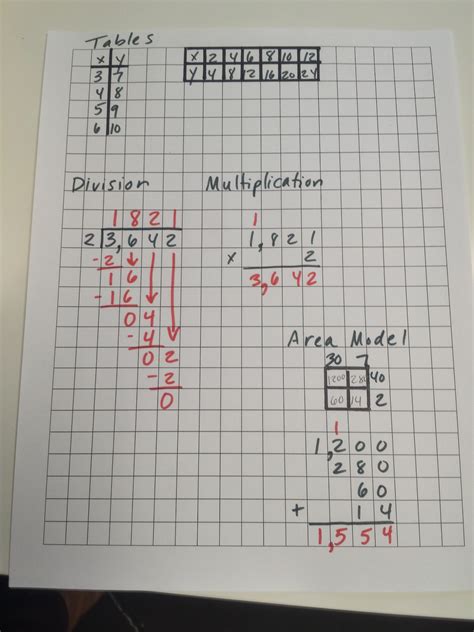 Tables
x y
3 7
4 8
5 9
6 10
X 2 4 6 8 10 12
Y 4 8 12 16 20 24
Division
1 8 2 1
2 3,6 4 2
-2
1 6
-1 6
0 4
-4
0 2
-2
0
Multiplication
1
1,8 2 1
x 2
3,6 4 2
Area Model
30 7
1200 280 40
60 14 2
1
1,2 0 0
2 8 0
6 0
+ 1 4
1,5 5 4